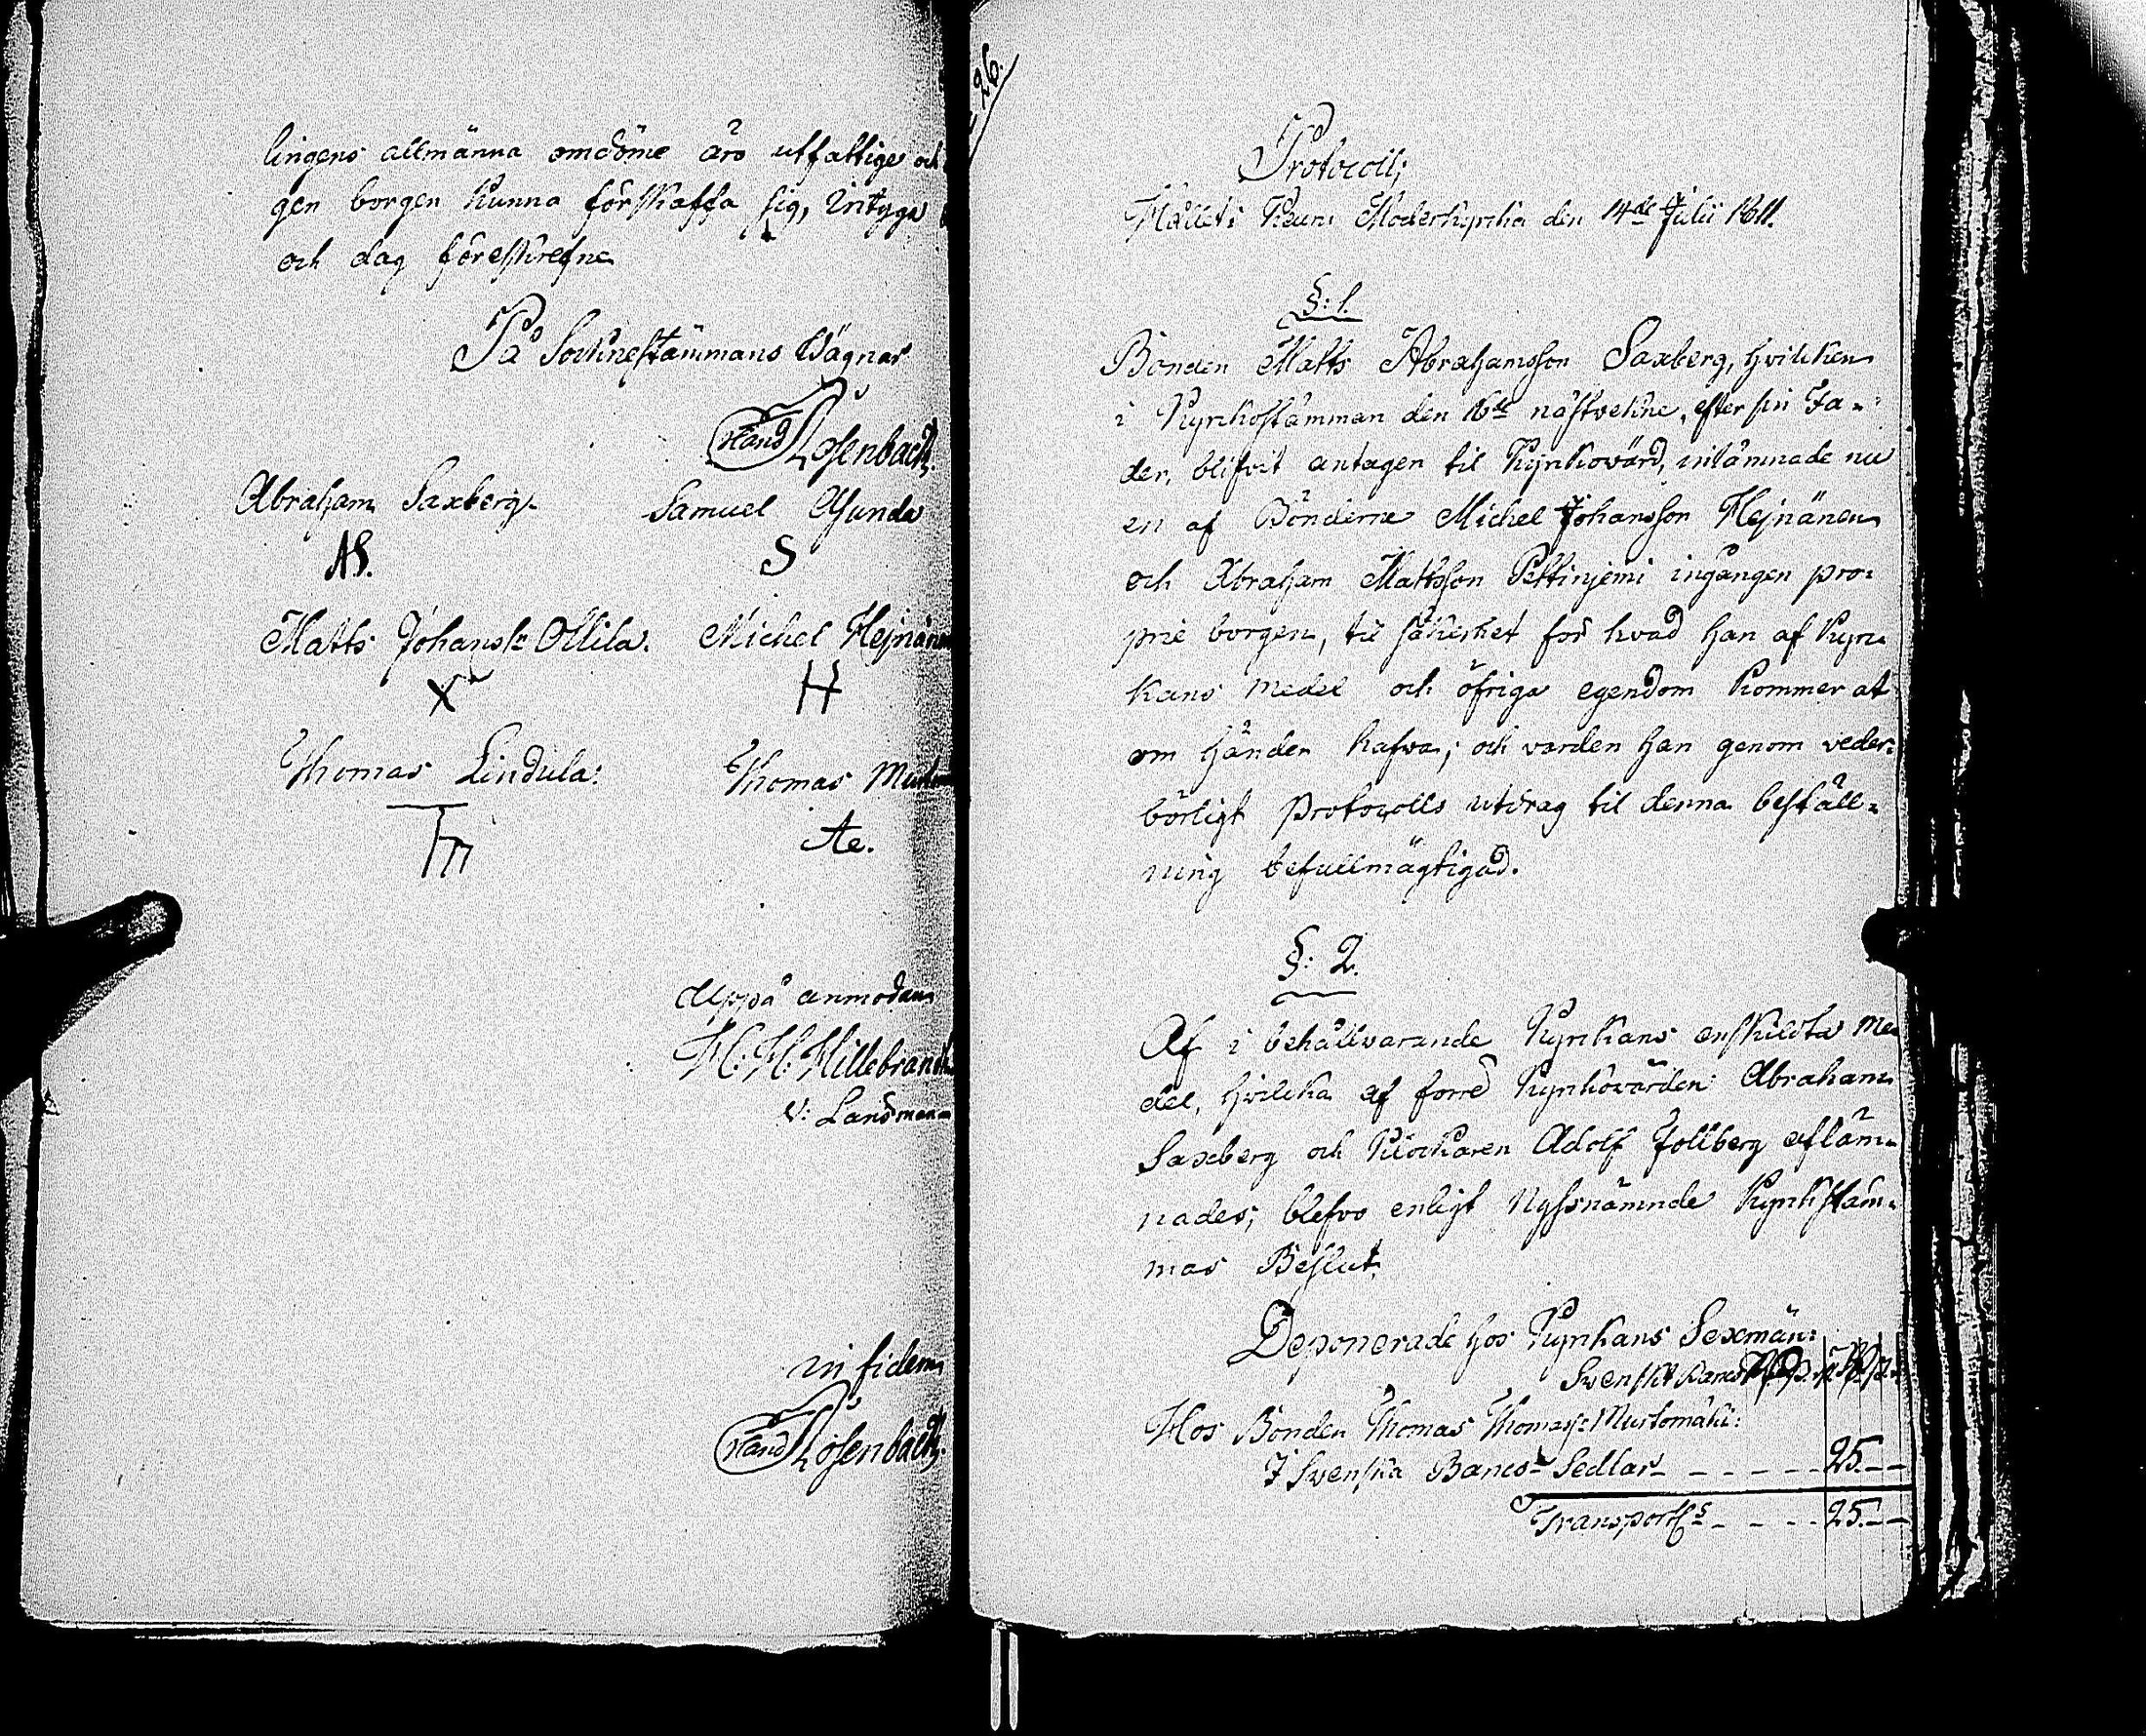 lingens allmänna omdöme äro utfattige och
gen borgen kunna förskaffa sig, intyga
och dag föreskrefne
På Socknestämmans Wägnar
Rosenbach.
Abraham Saxberg. Samuel
AS. S
Matts Johanss: Ollila. Michel Hejnänen
X H
Thomas Lindula. Thomas
Ae.
Uppå anmodan
H: H: Hillebrandt
V: Landsman
in fidem
Rosenbach.
26.
Protocoll;
Hållet i Keuru Moderkyrka den 14de Julii 1811.
§: 1.
Bonden Matts Abrahamsson Saxberg, hvilken
i Kyrkostämman den 16de nästvekne, efter sin Fa-
der, blifvit antagen til Kyrkovärd, inlämnade nu
en af Bönderne Michel Johansson Hejnänen
och Abraham Mattsson Pettinjemi ingången pro-
prie borgen, til säkerhet för hvad han af Kyr-
kans medel och öfriga egendom kommer at
om händer hafva; och varden han genom veder-
börligt Protocolls utdrag til denna beställ-
ning befullmägtigad.
§: 2.
Af i behåll varande Kyrkans enskildta Me-
del, hvilka af förre Kyrkovärden Abraham
Saxberg och Klockaren Adolf Jollberg afläm-
nades, blefvo enligt Nyssnämnde Kyrkstäm-
mas Beslut
Deponerade hos Kyrkans Sexmän:
Swenskt Banco
Hos Bonden Thomas Thomass: Murtomäki:
I Swenska Banco Sedlar - - - - - 25. - -
Transport - - - - 25. - -